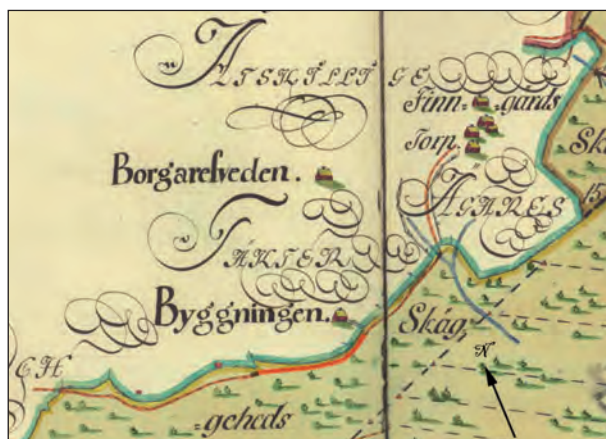 ATSKILLIGE
Finn= gårds
Torp.
Sk
Borgareſveden.
ÄGARES
15
TÄKTER
Byggningen.
Skåg,
N
CH
=geheds